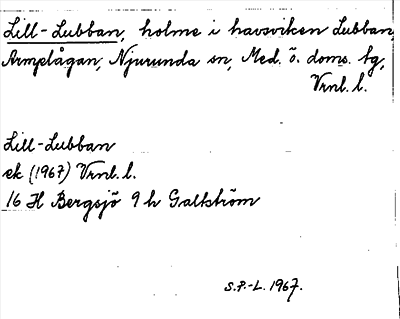 Lill-Lubban, holme i havsviken Lubban,
Armplågan, Njurunda sn, Med. ö. doms. bg,
Vrnl. l.
Lill-Lubban
ek (1967) Vrnl. l.
16 H Bergsjö 9 h Galtström
S.P.-L. 1967.